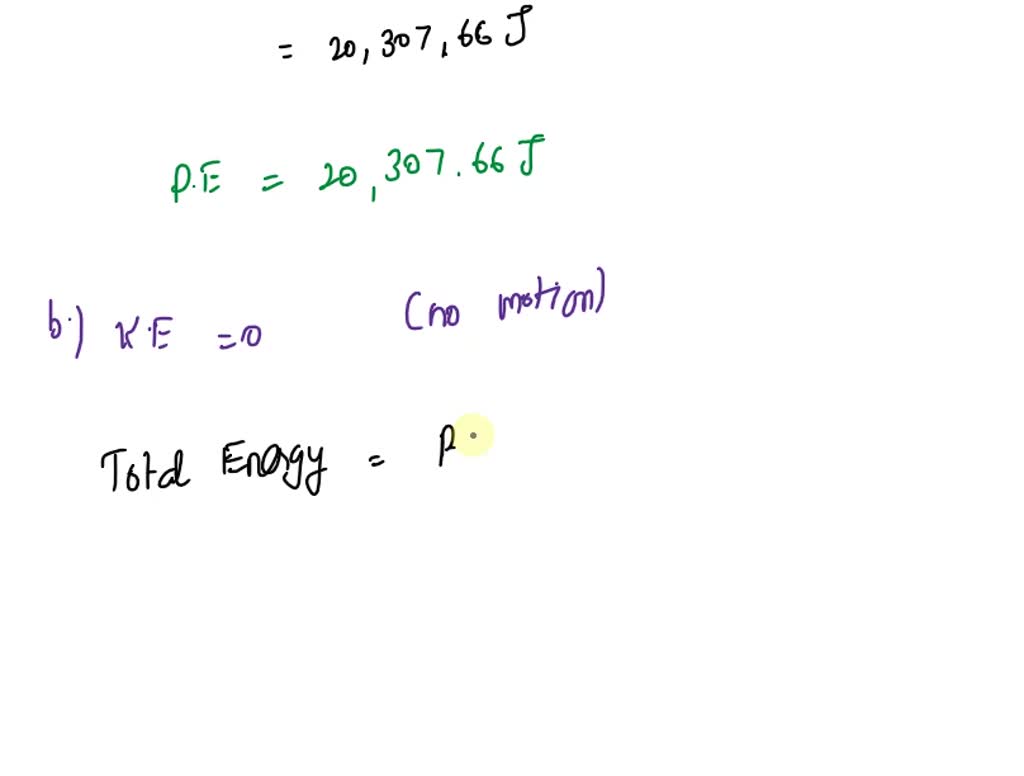 = 20,307,66 J
P.E = 20,307.66 J
b.) K.E =0 (no motion)
Total Energy = P